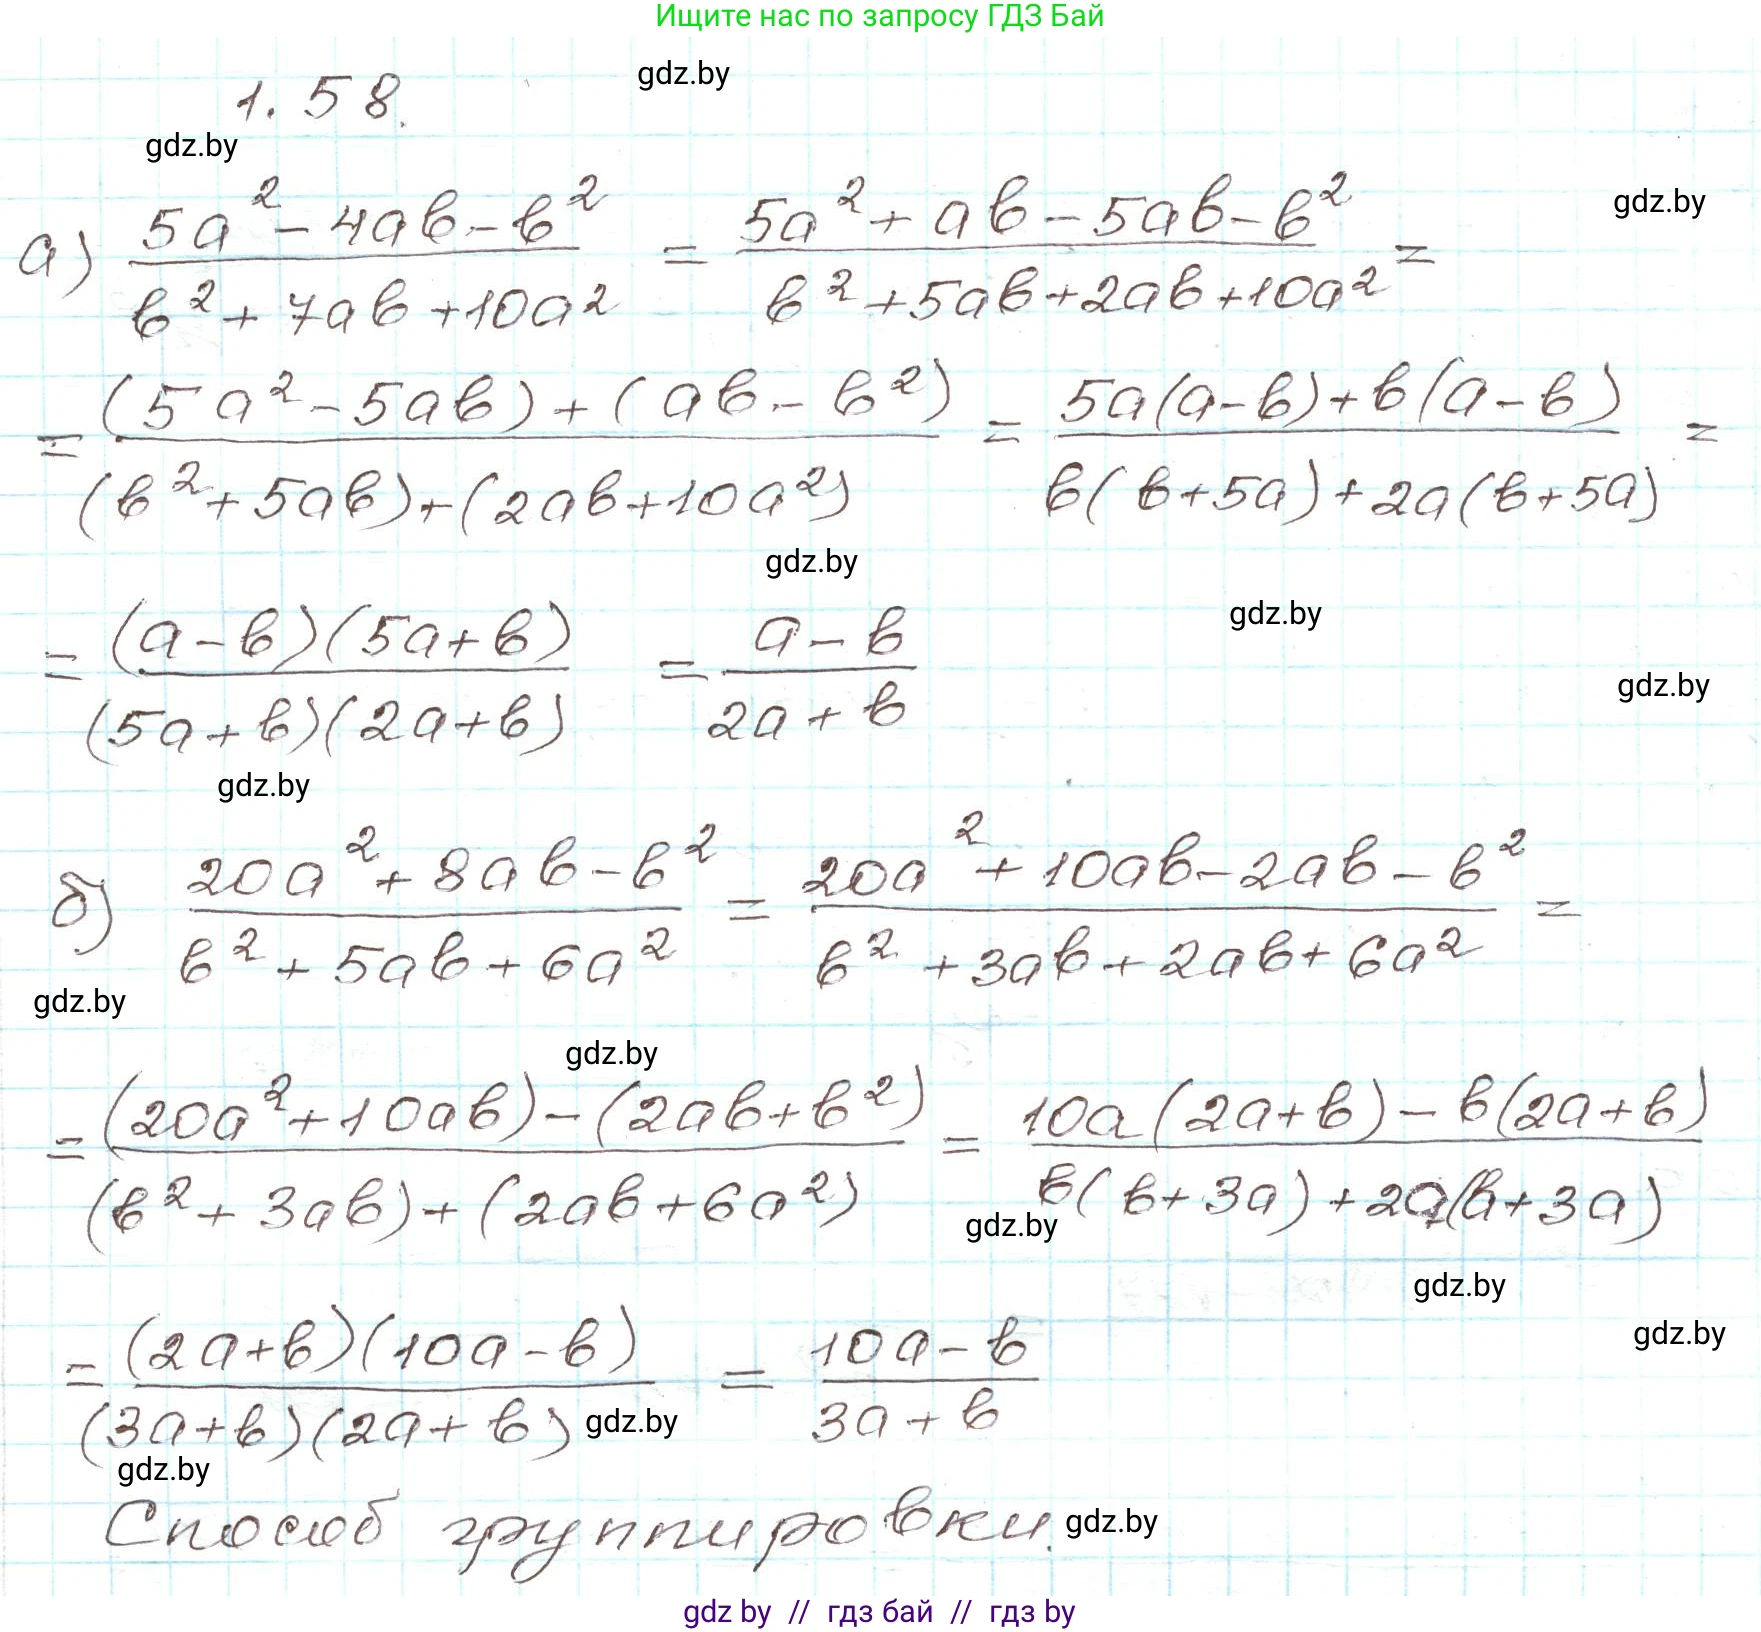 Ищите нас по запросу ГДЗ Бай
gdz.by
1.58.
gdz.by
gdz.by
а) (5a² - 4ab - b²)/(b² + 7ab + 10a²) = (5a² + ab - 5ab - b²)/(b² + 5ab + 2ab + 10a²) =
= ((5a² - 5ab) + (ab - b²))/((b² + 5ab) + (2ab + 10a²)) = (5a(a - b) + b(a - b))/(b(b + 5a) + 2a(b + 5a)) =
gdz.by
gdz.by
= ((a - b)(5a + b))/((5a + b)(2a + b)) = (a - b)/(2a + b)
gdz.by
gdz.by
б) (20a² + 8ab - b²)/(b² + 5ab + 6a²) = (20a² + 10ab - 2ab - b²)/(b² + 3ab + 2ab + 6a²) =
gdz.by
gdz.by
= ((20a² + 10ab) - (2ab + b²))/((b² + 3ab) + (2ab + 6a²)) = (10a(2a + b) - b(2a + b))/(b(b + 3a) + 2a(b + 3a))
gdz.by
gdz.by
gdz.by
= ((2a + b)(10a - b))/((3a + b)(2a + b)) = (10a - b)/(3a + b)
gdz.by
gdz.by
Способ группировки.
gdz.by
gdz by // гдз бай // гдз by